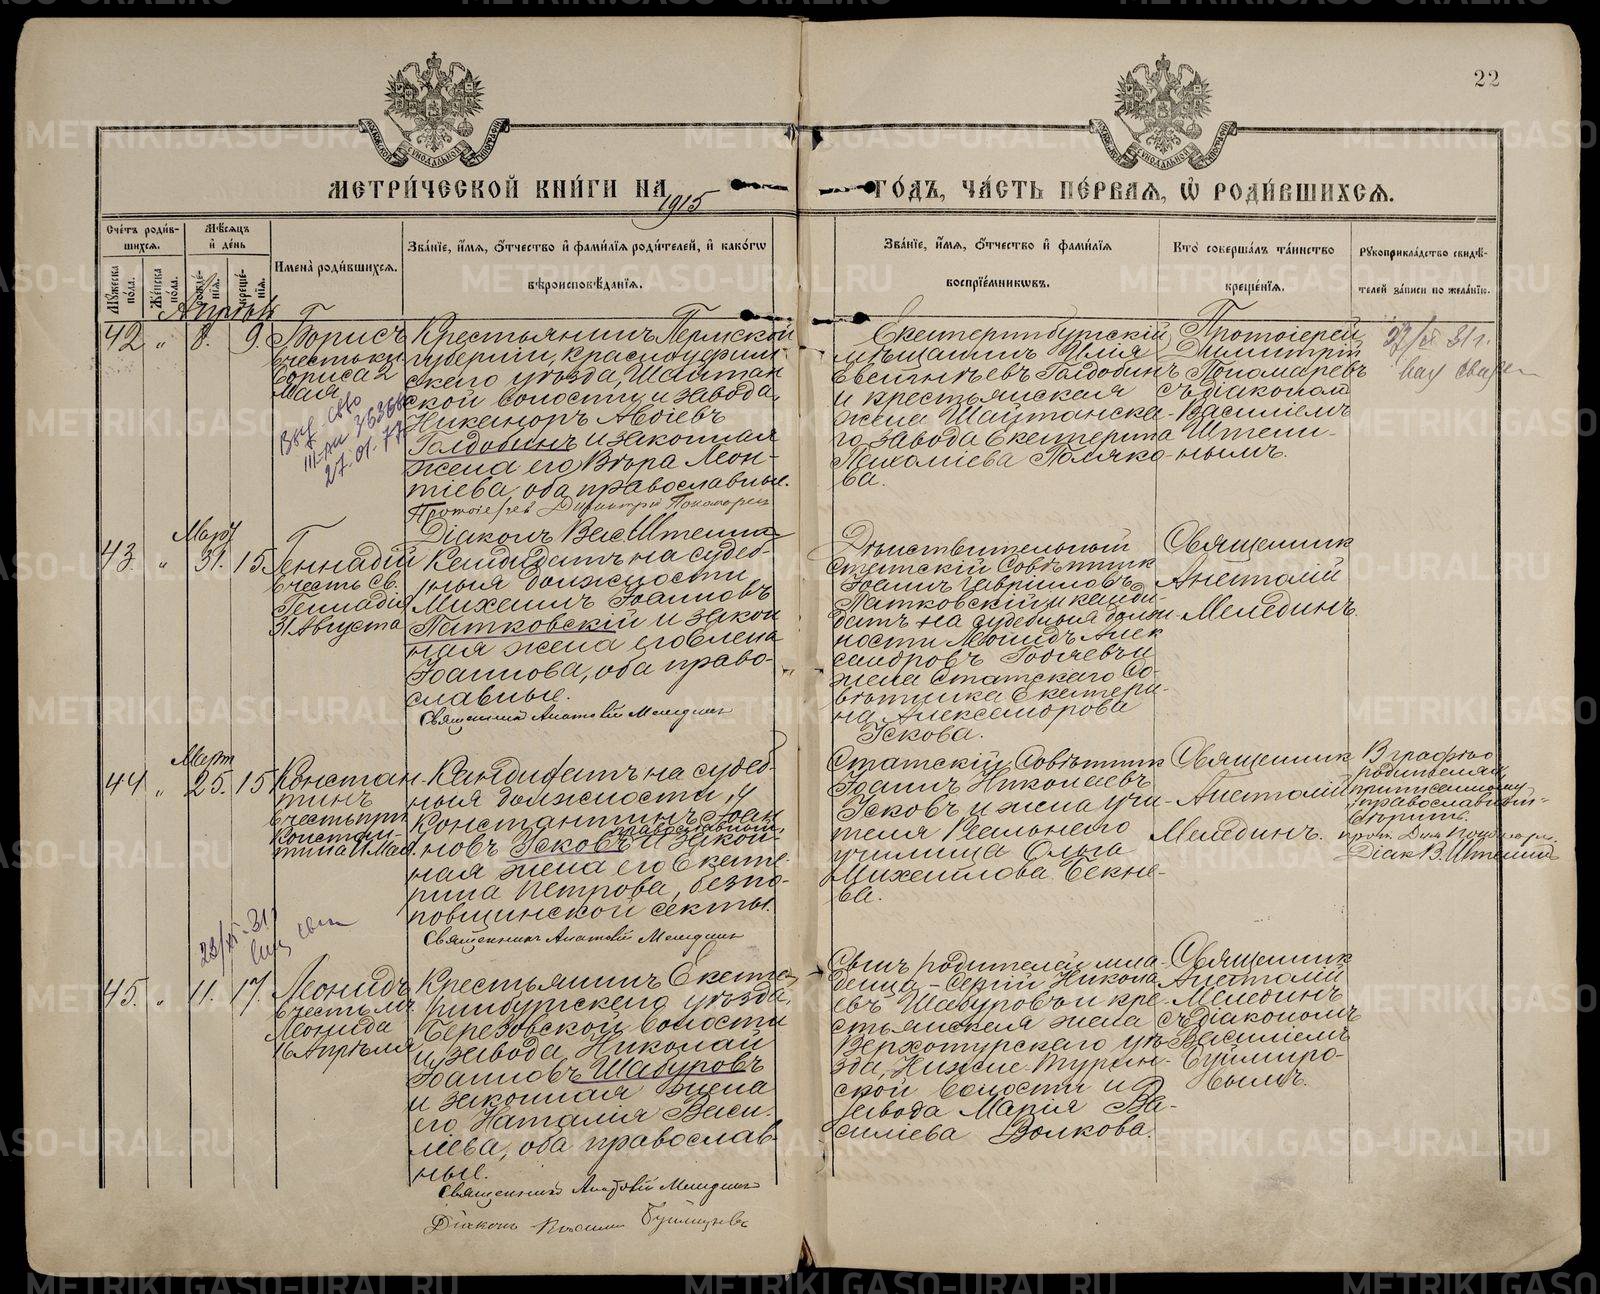 22
МЕТРИ́ЧЕСКОЙ КНИ́ГИ НА 1915 ГО́ДЪ, ЧА́СТЬ ПЕ́РВАЯ, Ѡ РОДИ́ВШИХСЯ.
Сче́тъ роди́в-
шихся.
Мꙋ́жеска
по́ла.
Же́нска
по́ла.
Мѣ́сяцъ
и҆ де́нь
роже́-
нїя.
креще́-
нїя.
Имена̀ роди́вшихся.
Зва́нїе, и҆́мя, ѻ҆́тчество и҆ фами́лїя роди́телей, и҆ како́гѡ
вѣроисповѣ́данїя.
Зва́нїе, и҆́мя, ѻ҆́тчество и҆ фами́лїя
воспрїе́мникѡвъ.
Кто̀ соверша́лъ та́инство
креще́нїя.
Рꙋкоприкла́дство свидѣ́-
телей за́писи по жела́нїю.
Апрѣль
42 " 8. 9.
Борисъ
въ честь кн.
Бориса 2
Мая
27.01.77
Крестьянинъ Пермской
губерніи, Красноуфим-
скаго уѣзда, Шайтан
ской волости и завода,
Никаноръ Авдіевъ
Голдобинъ и законная
жена его Вѣра Леон-
тіева, оба православные.
Протоіерей Димитрій Пономаревъ
Діаконъ Вас Штенни
Екатеринбургскій
мѣщанинъ Илія
Евстигнѣевъ Голдобинъ
и крестьянская
жена Шайтанска-
го завода Екатерина
Пахоміева Поляко-
ва.
Протоіерей
Димитрій
Пономаревъ
съ діакономъ
Василіемъ
Штенни-
нымъ.
Мартъ
43. " 31. 15.
Геннадій
въ честь св.
Геннадія
31 Августа
Кандидатъ на судеб-
ныя должности
Михаилъ Іоанновъ
Патковскій и закон
ная жена его Елена
Іоаннова, оба право-
славные.
Священникъ Анатолій Мелединъ
Дѣйствительный
Статскій Совѣтник
Іоаннъ Гавріиловъ
Патковскій и канди-
датъ на судебныя долж
ности Леонидъ Алек
сандровъ
жена Статскаго Со-
вѣтника Екатери-
на Александрова
Ускова.
Священник
Анатолій
Мелединъ.
Мартъ
44 " 25. 15
Констан-
тинъ
въ честь прп
Констан-
тина Мая
Кандидатъ на судеб-
ныя должности,
Константинъ Іоан
православный,
новъ Усковъ и закон-
ная жена его Екате-
рина Петрова, безпо-
повщинской секты.
Священникъ Анатолій Мелединъ
Статскій Совѣтник
Іоаннъ Николаевъ
Усковъ и жена учи-
теля Реальнаго
училища Ольга
Михаилова Бекне-
ва.
Священник
Анатолій
Мелединъ.
В графѣ о
родителяхъ
приписанному
"православный"
вѣрить.
прот. Дим Пономаре
Діак В. Штеннин
45. " 11. 17.
Леонидъ
въ честь мч.
Леонида
16 Апрѣля
Крестьянинъ Екате-
ринбургскаго уѣзда,
Березовской волости
и завода Николай
Іоанновъ Шабуровъ
и законная жена
его Наталія Васи-
ліева, оба православ-
ные.
Священникъ Анатолій Мелединъ
Сынъ родителей мла-
денца - Сергій Никола
евъ Шабуровъ и кре-
стьянская жена
Верхотурскаго уѣ-
зда, Нижне Турин-
ской волости и
завода Марія Ва-
силіева Волкова.
Священник
Анатолій
Мелединъ
съ діакономъ
Василіемъ
METRIKI.GASO-URAL.RU